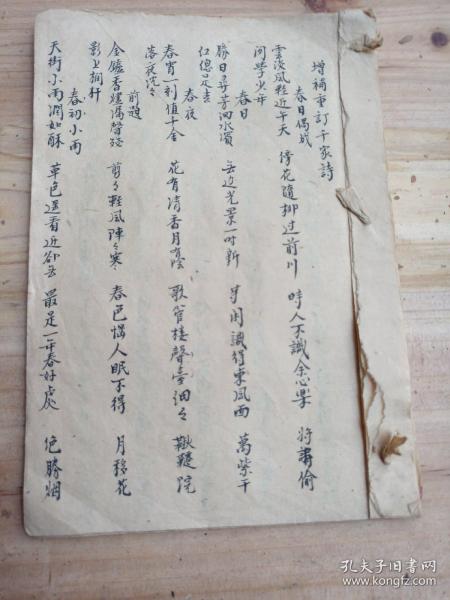 增補重訂千家詩
春日偶成
雲淡風輕近午天 傍花隨柳过前川 時人不識余心樂 将謂偷
闲學少年
春日
勝日尋芳泗水濱 无边光景一时新 等闲識得東風面 萬紫千
红總是春
春夜
春宵一刻值千金 花有清香月陰 歌管樓聲臺细々 鞦韆院
落夜沉々
前題
金鑪香燼漏聲残 剪々輕風陣々寒 春色惱人眠不得 月移花
影上栏杆
春初小雨
天街小雨潤如酥 草色遥看近卻无 最是一年春好處 绝勝烟
孔夫子旧书网
www.kongfz.com